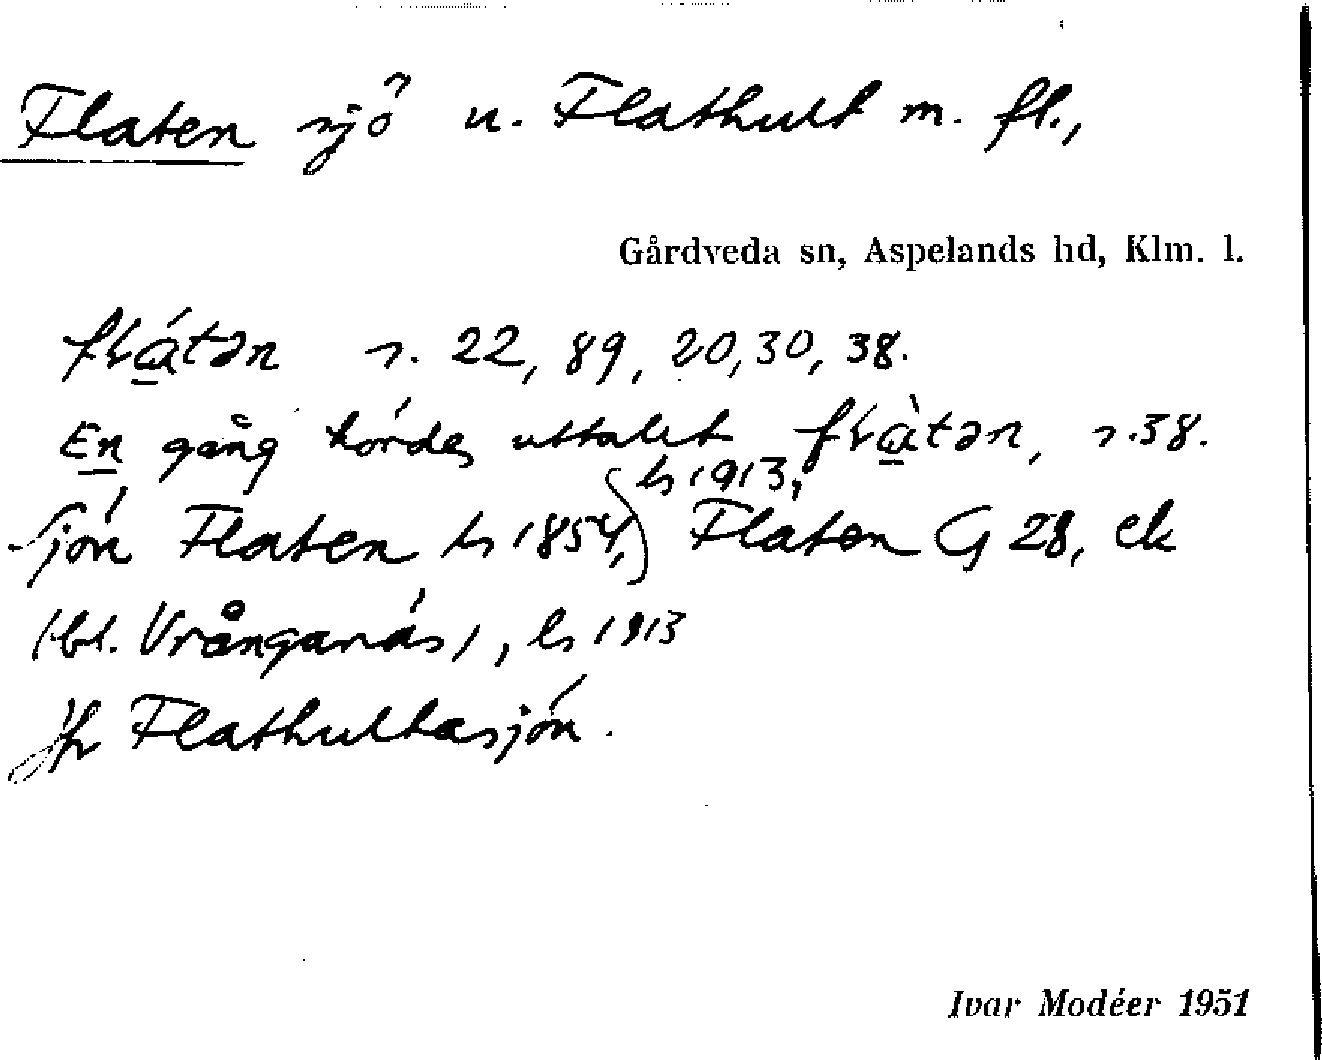 Flaten sjö u. Flathult m. fl.,
Gårdveda sn, Aspelands hd, Klm. l.
flátən s. 22, 89, 20, 30, 38.
En gång hördes uttalet flàtən, s. 38.
ls 1913,
Sjön Flaten ls 1854, Flaten G 28, ek
(bl. Vrånganäs), ls 1913
Jfr Flathultasjön.
Ivar Modéer 1951